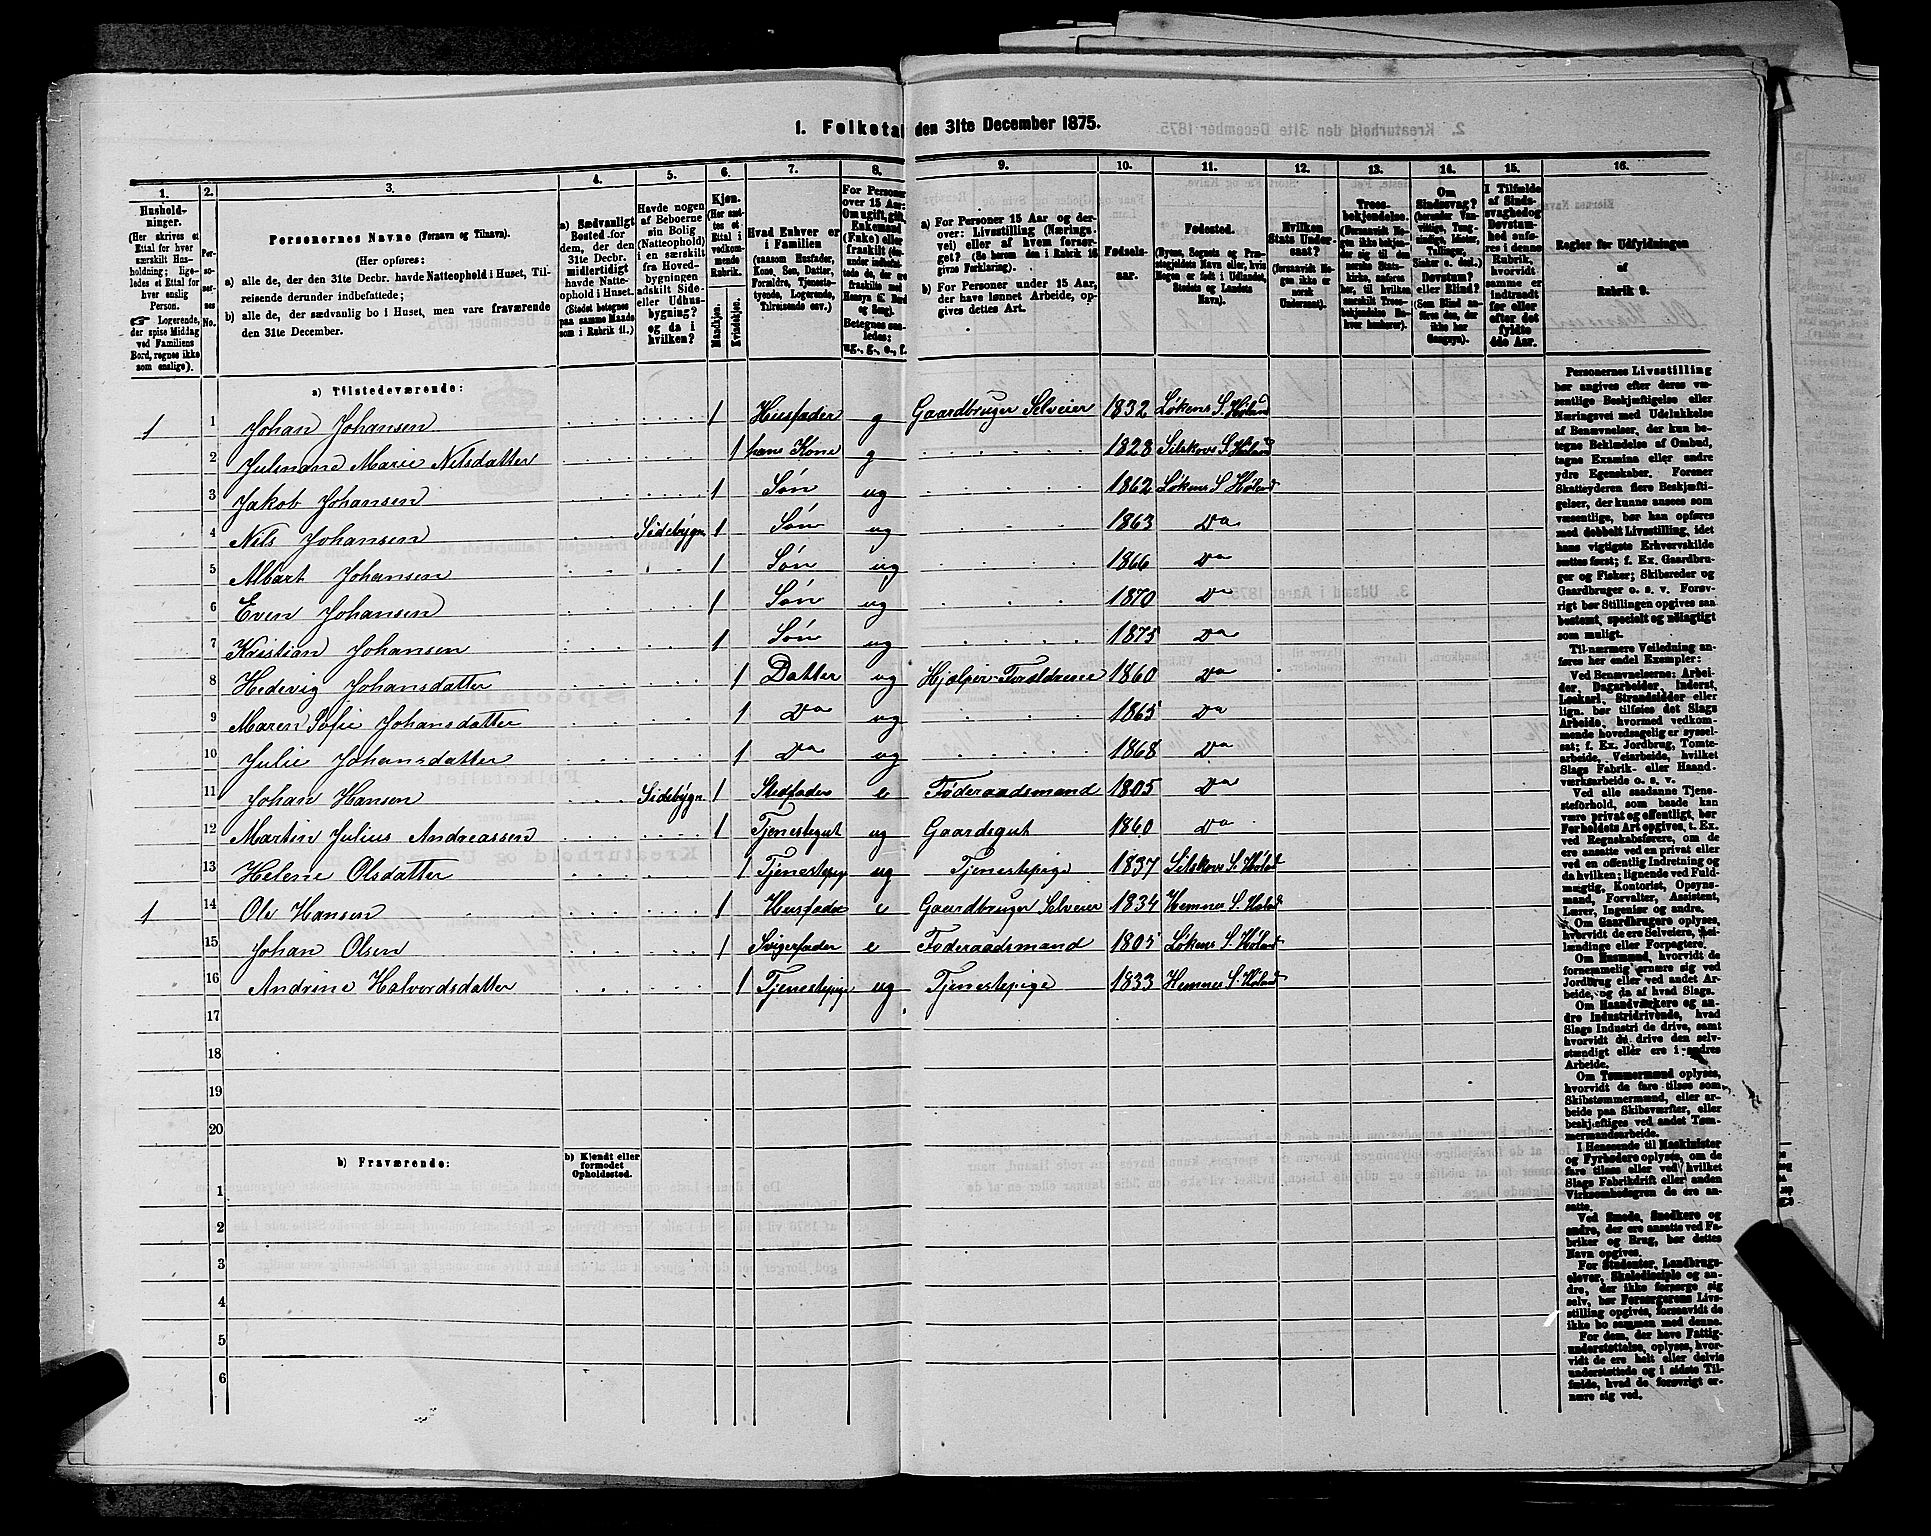 1. Folketal den 31te December 1875.
1. 2. 3. 4. 5. 6. 7. 8. 9. 10. 11. 12. 13. 14. 15. 16.
Hushold-
ninger.
(Her skrives et
Ettal for hver
særskilt Hus-
holdning; lige-
ledes et Ettal for
hver enslig
Person.
Logerende,
der spise Middag
ved Familiens
Bord, regnes ikke
som enslige).
Personernes No.
Personernes Navne (Fornavn og Tilnavn).
(Her opføres:
a) alle de, der den 31te Decbr. havde Natteophold i Huset, Til-
reisende derunder indbefattede;
b) alle de, der sædvanlig bo i Huset, men vare fraværende
den 31te December.
a) Sædvanligt
Bosted for
dem, der den
31te Decbr.
midlertidigt
havde Natte-
ophold i Huset.
(Stedet betegnes
paa samme Maade
som i Rubrik 11.)
Havde nogen
af Beboerne
sin Bolig
(Natteophold)
i en særskilt
fra Hoved-
bygningen
adskilt Side-
eller Udhus-
bygning?
og da i
hvilken?
Kjøn.
(Her sæt-
tes et
Ettal i
vedkom-
mende
Rubrik.)
Mandkjøn.
Kvindekjøn.
Hvad Enhver er
i Familien
(saasom Husfader,
Kone, Søn, Datter,
Forældre, Tjeneste-
tyende, Logerende,
Tilreisende osv.)
For Personer
over 15 Aar:
Om ugift, gift,
Enkemand
(Enke) eller
fraskilt
Betegnes saa-
ledes:
ug., g., e., f.
a) For Personer 15 Aar og der-
over: Livsstilling (Nærings-
vei) eller af hvem forsør-
get? (Se herom den i Rubrik 16
givne Forklaring).
b) For Personer under 15 Aar,
der have lønnet Arbeide, op-
gives dettes Art.
Fødsels-
aar.
Fødested.
(Byens, Sognets og Præ-
stegjeldets Navn eller, hvis
Nogen er født i Udlandet,
Stedets og Landets
Navn).
Hvilken
Stats Under-
saat?
(forsaavidt No-
gen ikke er
norsk
Undersaat).
Troes-
bekjendelse.
(Forsaavidt No-
gen ikke bekjen-
der sig til den
norske Stats-
kirke, anføres
her, til hvilken
særskilt Troes-
bekjendelse Be-
hver henhører).
Om
Sindssvag?
(herunder Van-
vittige, Tung-
sindige, Idioter,
Tullinger,
Sinker o. desl.)
Døvstum?
eller Blind?
(Som Blind an-
føres den, der
ikke har
Gangsyn).
I Tilfælde
af Sinds-
svaghed og
Døvstum-
hed anfø-
res i denne
Rubrik,
hvorvidt
samme er
indtraadt
før eller
efter det
fyldte
4de Aar.
Regler for Udfyldningen
af
Rubrik 9.
a) Tilstedeværende:
1 1 Johan Johansen 1 Husfader g Gaardbruger Selveier 1832 Løkens S. Høland
2 Julenane Marie Nilsdatter 1 hans Kone g 1828 Sitskovs S. Høland
3 Jakob Johansen 1 Søn ug 1862 Løkens S. Høland
4 Nils Johansen Sidebygn. 1 Søn ug 1863 Do
5 Albart Johansen 1 Søn ug 1866 Do
6 Even Johansen 1 Søn ug 1870 Do
7 Kristian Johansen 1 Søn ug 1875 Do
8 Hedevig Johansdatter 1 Datter ug Hjælper Forældrene 1860 Do
9 Maren Sofie Johansdatter 1 Do ug 1865 Do
10 Julie Johansdatter 1 Do ug 1868 Do
11 Johan Hansen Sidebygn. 1 Stedfader e Føderaadsmand 1805 Do
12 Martin Julius Andreassen 1 Tjenestegut ug Gaardsgut 1860 Do
13 Helene Olsdatter 1 Tjenestepige ug Tjenestepige 1837 Sitskovs S. Høland
1 14 Ole Hansen 1 Husfader e Gaardbruger Selveier 1834 Hemnes S. Høland
15 Johan Olsen 1 Svigerfader e Føderaadsmand 1805 Løkens S. Høland
16 Andrine Halvordsdatter 1 Tjenestepige ug Tjenestepige 1833 Hemnes S. Høland
17
18
19
20
b) Fraværende: b) Kjendt eller
formodet
Opholdssted.
1
2
3
4
5
6
Personernes Livsstilling
bør angives efter deres væ-
sentlige Beskjæftigelse eller
Næringsvei med Udelukkelse
af Benævnelser, der kun be-
tegne Beklædelse af Ombud,
tagne Examina eller andre
ydre Egenskaber. Forener
Skatteyderen flere Beskjæfti-
gelser, der kunne ansees som
væsentlige, bør han opføres
med dobbelt Livsstilling, idet
hans vigtigste Erhvervskilde
sættes først; f. Ex. Gaardbru-
ger og Fisker; Skibsreder og
Gaardbruger o. s. v. Forøv-
rigt bør Stillingen opgives saa
bestemt, specielt og nøiagtigt
som muligt.
Til nærmere Veiledning an-
føres her endel Exempler:
Ved Benævnelserne: Arbei-
der, Dagarbeider, Inderst,
Løskarl, Strandsidder eller
lign. bør tilføies det Slags
Arbeide, hvormed vedkom-
mende hovedsagelig er syssel-
sat; f. Ex. Jordbrug, Tomte-
arbeide, Veiarbeide, hvilket
Slags Fabrik- eller Haand-
værksarbeide o. s. v.
Ved alle saadanne Tjene-
steforhold, som baade kan
være privat og offentligt, bør
Forholdets Art opgives, t. Ex.
ved Regnskabsførere, om de
ere ansatte ved en privat eller
ved en offentlig Indretning og
da hvilken; lignende ved Fuld-
mægtig, Kontorist, Opsyns-
mand, Forvalter, Assistent,
Lærer, Ingeniør og andre.
Om Gaardbrugere oplyses,
hvorvidt de ere Selveiere, Lei-
lændinge eller Forpagtere.
Om Husmænd, hvorvidt de
fornemmelig ernære sig ved
Jordbrug eller ved andet Ar-
beide, og da af hvad Slags.
Om Haandværkere og an-
dre Industridrivende, hvad
Slags Industri de drive, samt
hvorvidt de drive den selv-
stændigt eller ere i andres
Arbeide.
Om Tømmermænd oplyses,
hvorvidt de fare tilsøs som
Skibstømmermænd, eller ar-
beide paa Skibsværfter, eller
beskjæftiges ved andet Tøm-
mermandsarbeide.
I Henseende til Maskinister
og Fyrbødere oplyses, om de
fare tilsøs eller ved hvilket
Slags Fabrikdrift eller anden
Virksomhedsgren de ere an-
satte.
Ved Smede, Snedkere og
andre, der ere ansatte ved Fa-
briker og Brug, bør dettes
Navn opgives.
For Studenter, Landbrugs-
elever, Skoledisciple og an-
dre, der ikke forsørge sig
selv, bør Forsørgerens Livs-
stilling opgives, forsaavidt de
ikke bo sammen med denne.
For dem, der have Fattig-
understøttelse, oplyses, hvor-
vidt de ere helt eller delvis
understøttede og i sidste Til-
fælde, hvad de forøvrigt er-
nære sig ved.